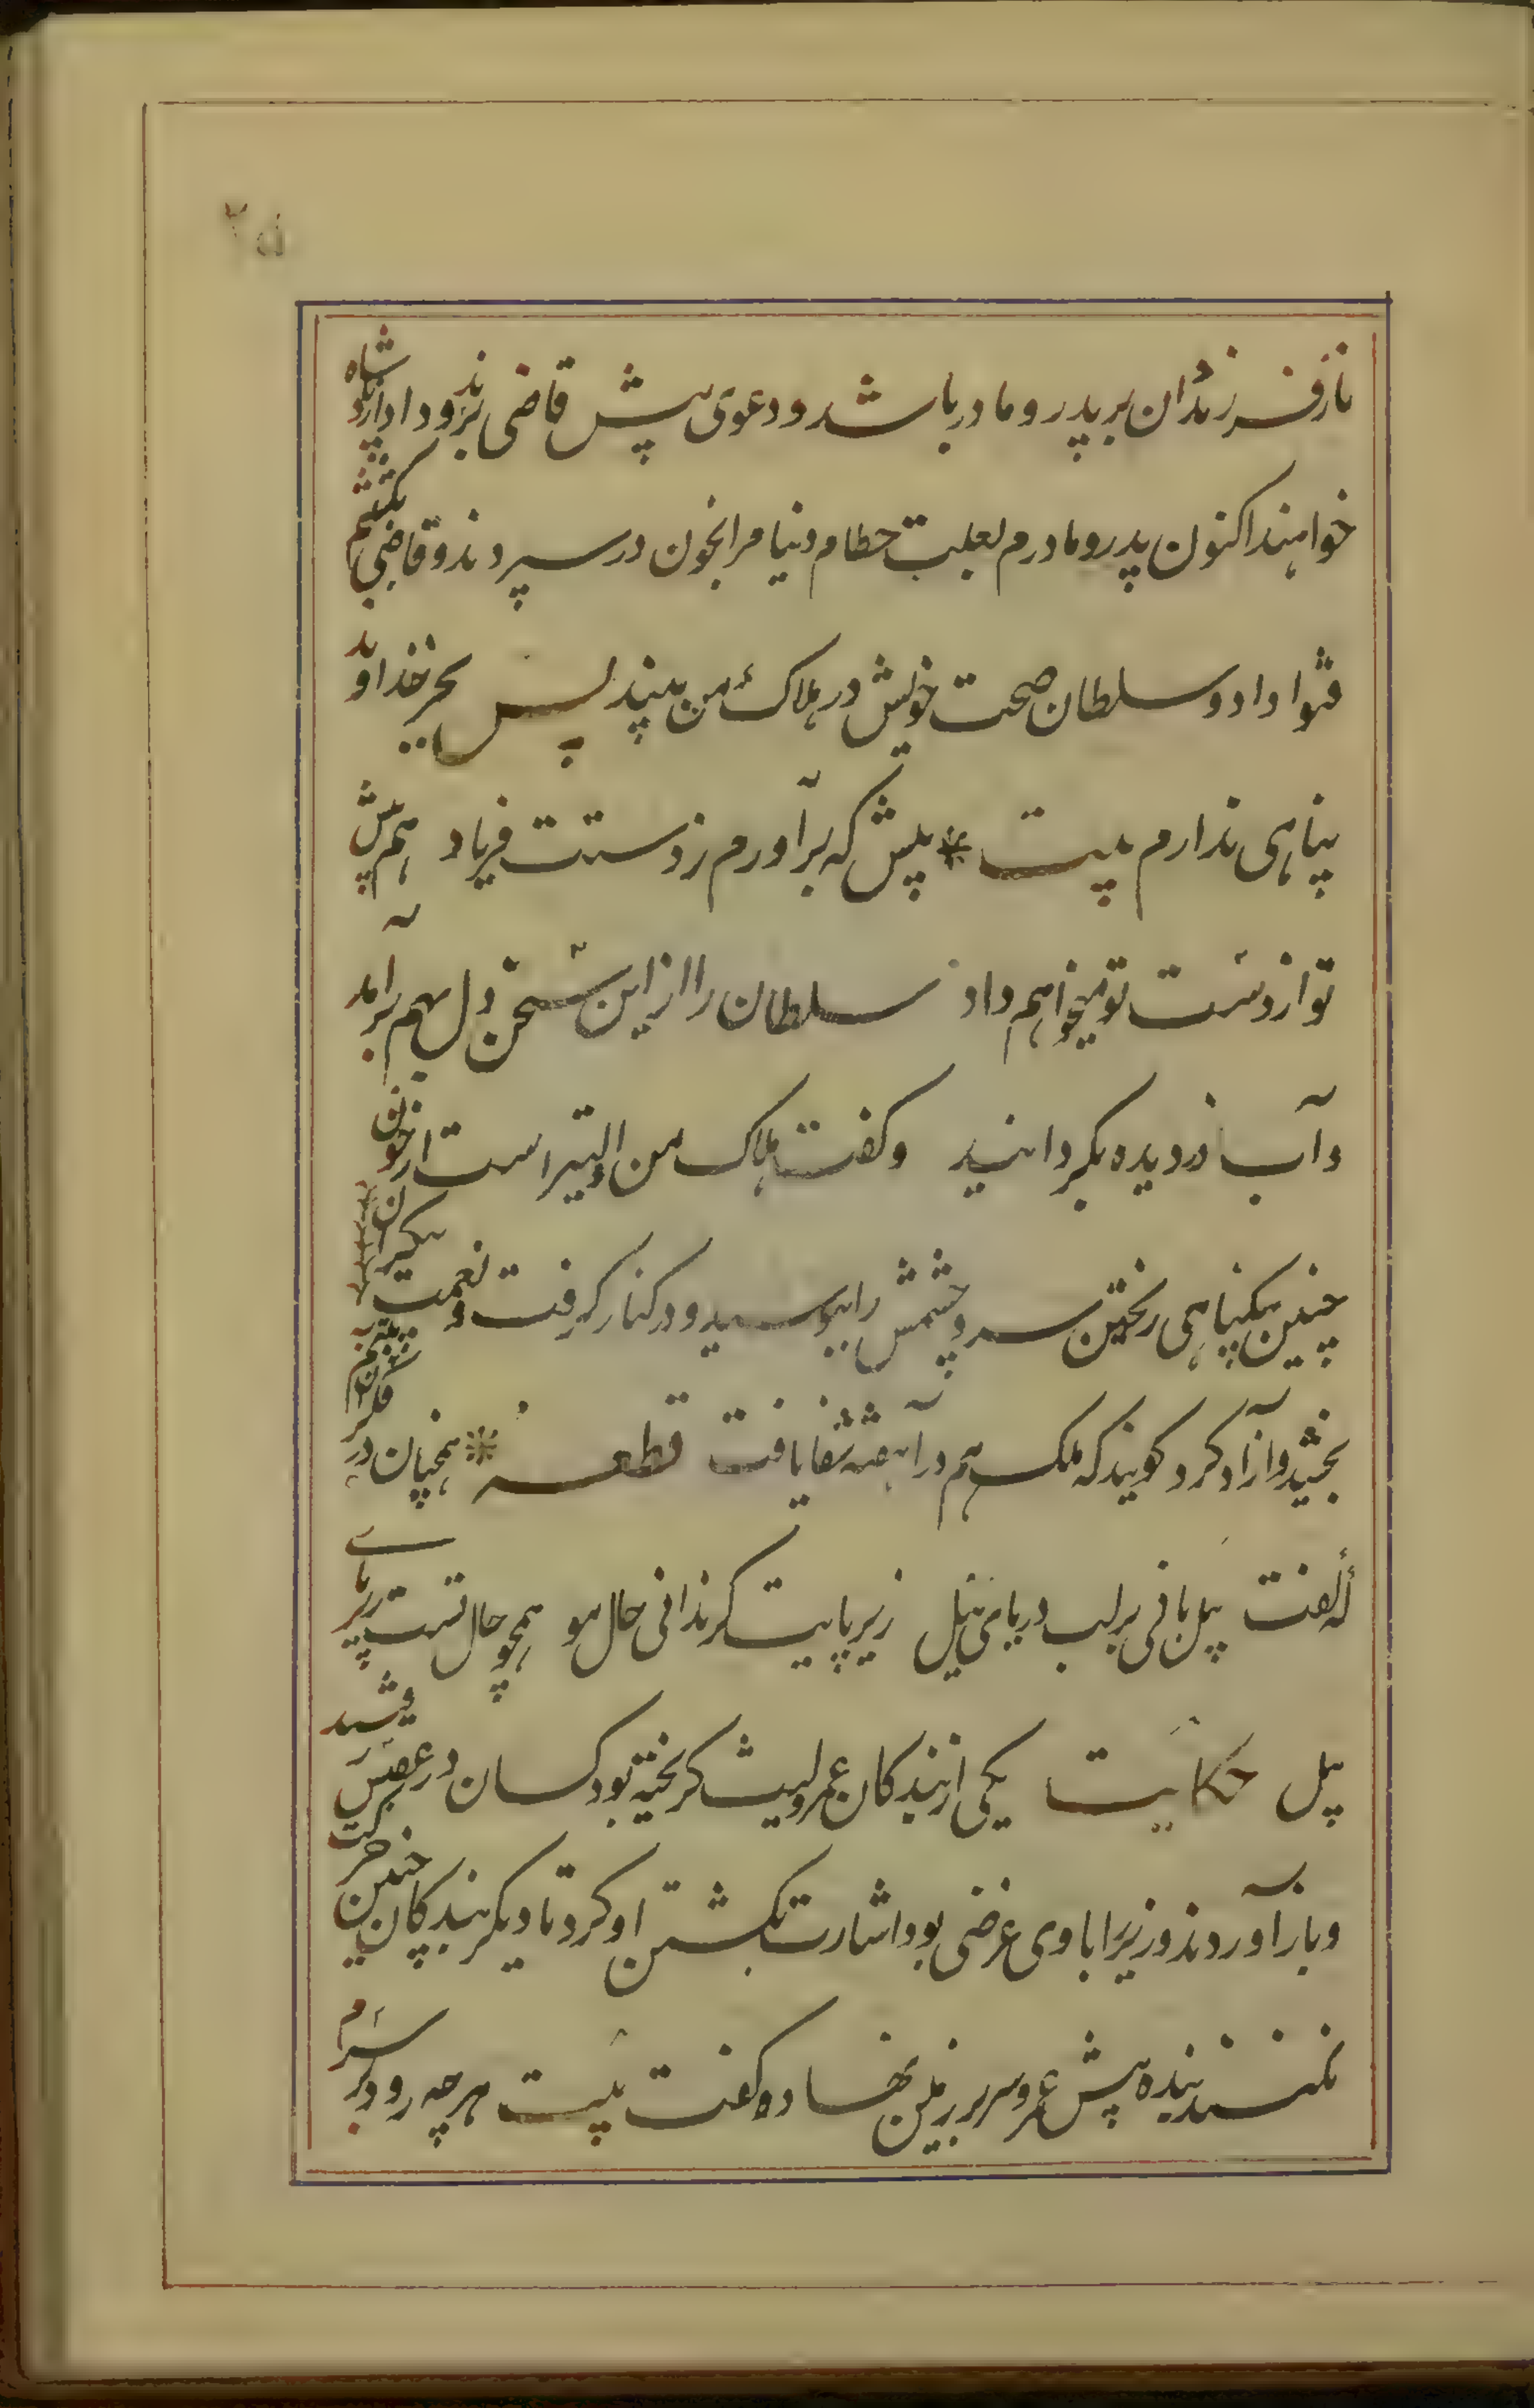 ناز فرزندان بر پدر و مادر باشد و دعوی پیش قاضی برند و داد از پادشاه
خواهند اکنون پدر و مادرم بعلت حطام دنیا مرا بخون در سپردند و قاضی بکشتنم
فتوا داد و سلطان صحت خویش در هلاک من بیند پس بجز خداوند
پناهی ندارم بیت * پیش که برآورم ز دستت فریاد هم پیش
تو از دست تو میخواهم داد سلطان را از این سخن دل بهم برآمد
و آب در دیده بگردانید و گفت هلاک من اولیتر است از خون
چنین بیگناهی ریختن سر و چشمش را ببوسید و در کنار گرفت و نعمت بیکران
بخشید و آزاد کرد گویند که ملک هم در آن هفته شفا یافت قطعه * همچنان در فکر آن بیتم
که گفت پیل بانی بر لب دریای نیل زیر پایت گر ندانی حال مور همچو حال تست زیر پای
پیل حکایت یکی از بندگان عمرولیث گریخته بود کسان در عقبش برفتند
و باز آوردند وزیر را با وی غرضی بود اشارت بکشتن او کرد تا دیگر بندگان چنین حرکت
نکنند بنده پیش عمرو سر بر زمین نهاد و گفت بیت هر چه رود بر سرم